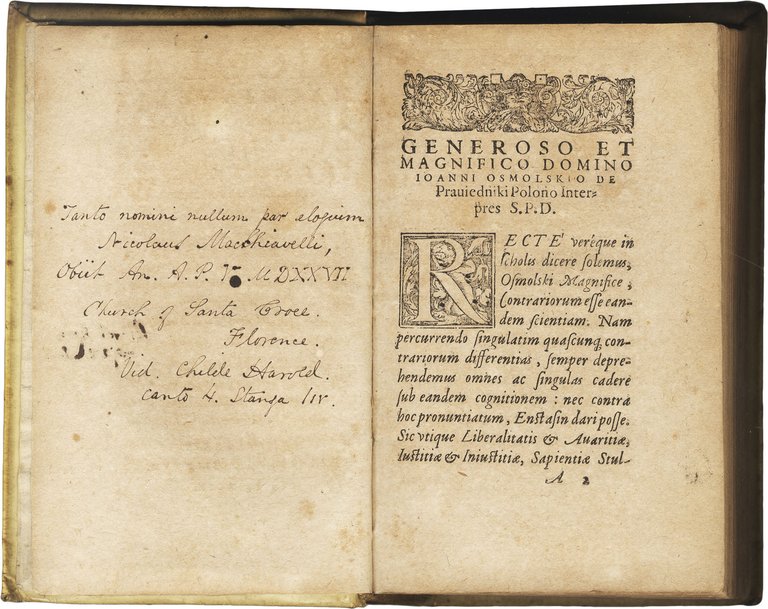 Tanto nomini nullum par elogium
Nicolaus Macchiavelli,
Obiit An. A. P. V. MDXXVII
Church of Santa Croce.
Florence.
Vid. Childe Harold.
Canto 4. Stanza liv.
GENEROSO ET
MAGNIFICO DOMINO
IOANNI OSMOLSKIO DE
Prauiedniki Polono Inter-
pres S.P.D.
RECTE verèque in
ſcholis dicere ſolemus,
Oſmolski Magnifice,
Contrariorum eſſe ean-
dem ſcientiam. Nam
percurrendo ſingulatim quaſcunq; con-
trariorum differentias, ſemper depre-
hendemus omnes ac ſingulas cadere
ſub eandem cognitionem : nec contra
hoc pronuntiatum, Enſtaſin dari poſſe.
Sic vtique Liberalitatis & Auaritiæ,
Iuſtitiæ & Iniuſtitiæ, Sapientiæ Stul-
A 2